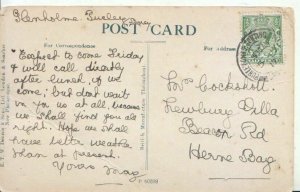 Glenholme, Purley,
POST CARD
For Correspondence
For Address
"Expect to come Friday
& will call directly
after lunch, if we
come, but don't wait
in for us at all, because
we shall find you all
right. Hope we shall
have better weather
than at present.
Yours May.
Mrs Cockshott.
Newbury Villa
Beacon Rd
Herne Bay